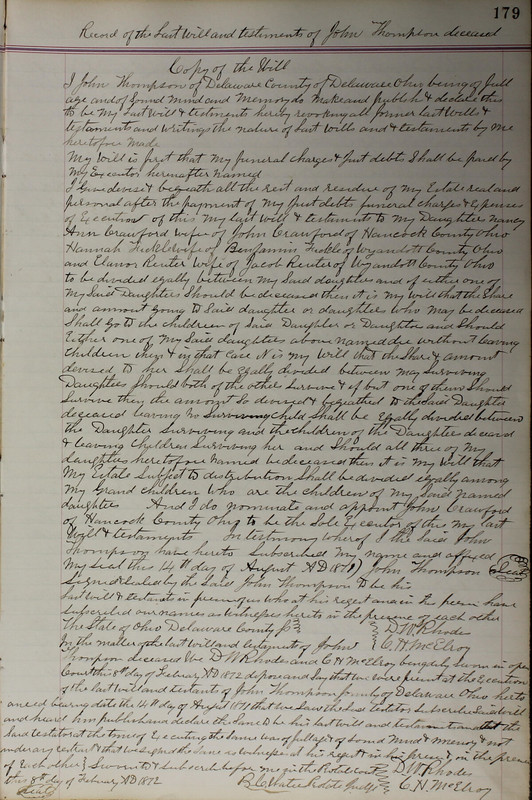 179
Record of the Last Will and testiments of John Thompson deceased
Copy of the Will
I John Thompson of Delaware County of Delaware Ohio being of full
age and of Sound Mind and Memory do Make and Publish & declare this
to be My Last Will & testiments hereby revokeing all former last Wills &
testaments and Writings the nature of Last Wills and testaments by Me
heretofore Made
My Will is first that My funeral charges & Just debts Shall be paid by
My Executor hereinafter Named
I Give devise & bequeath all the rest and residure of My Estate real and
personal after the payment of My Just debts funeral charges & Expenses
of Execution of this My last Will & testiments to My Daughters Nancy
Ann Crawford Wife of John Crawford of Hancock County Ohio
Hannah Fickle Wife of Benjamin Fickle of Wyandott County Ohio
and Elanor Reuter Wife of Jacob Reuter of Wyandott County Ohio
to be divided eqally between My Said daughters and if either one of
My Said Daughters Should be deceased then it is My Will that the Share
and amount going to Said daughter or daughters who May be deceased
Shall go to the children of Said Daughter or Daughters and Should
Either one of My Said daughters above named die without leaving
Children then & in that case it is My Will that the Share & amont
devised to her Shall be eqally divided between My Surviving
Daughters Should both of the others Survive & if but one of them Should
Survive then the amont So devised & beqeathed to the Said Daughter
deceased leaving no Surviving child Shall be Eqally divided between
the Daughter Surviving and the children of the Daughter deceased
& leaving Children Surviving her and Should all three of My
daughters heretofore Named be deceased then it is My Will that
My Estate Subject to distribution Shall be divided eqally among
My Grand children Who are the children of My Said Named
daughters And I do nominate and appoint John Crawford
of Hancock County Ohio to be the Sole Executor of this My last
Will & testaments In testimony whereof I the Said John
Thompson have hereto Subscribed My name and affixed
May Seal this 14th day of August AD 1871 John Thompson (Seal)
Signed & Sealed by the Said John Thompson to be his
last will & testiments in presence of us who at his reqest and in his presence have
subscribed our names as Witnesses hereto in the presence of each other
The State of Ohio Delaware County Ss D. W. Rhodes
C. H. McElroy
In the matter of the last Will and testament of John
Thompson deceased We D W Rhodes and C H McElroy being duly Sworn in open
Court this 8th day of February AD 1872 depose and Say that We were present at the Execution
of the last Will and testaments of John Thompson formerly of Delaware Ohio hereto
annexed bearing date the 14 day of August 1871 that we Saw the Said testator Subscribe Said will
and heard him publish and declare the Same to be his last will and testament and that the
Said testator at the time of Executing the Same was of full age & of Sound Mind & Memory & not
under any restraint & that we Signed the Same as Witnesses at his reqest & in his presence & in the presence
of Each other Sworn to & subscribed before me in the Probate Court D. W. Rhodes
this 8th day of February AD 1872
(Seal) B. C. Waters Probate Judge C. H. McElroy